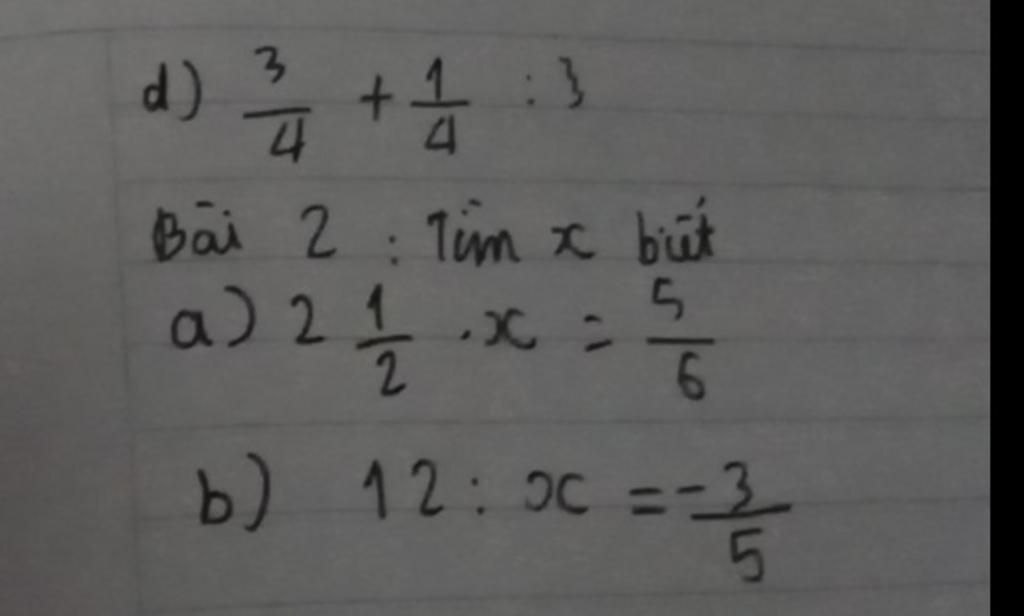 d) 3/4 + 1/4 : 3
Bài 2 : Tìm x biết
a) 2 1/2 . x = 5/6
b) 12 : x = -3/5